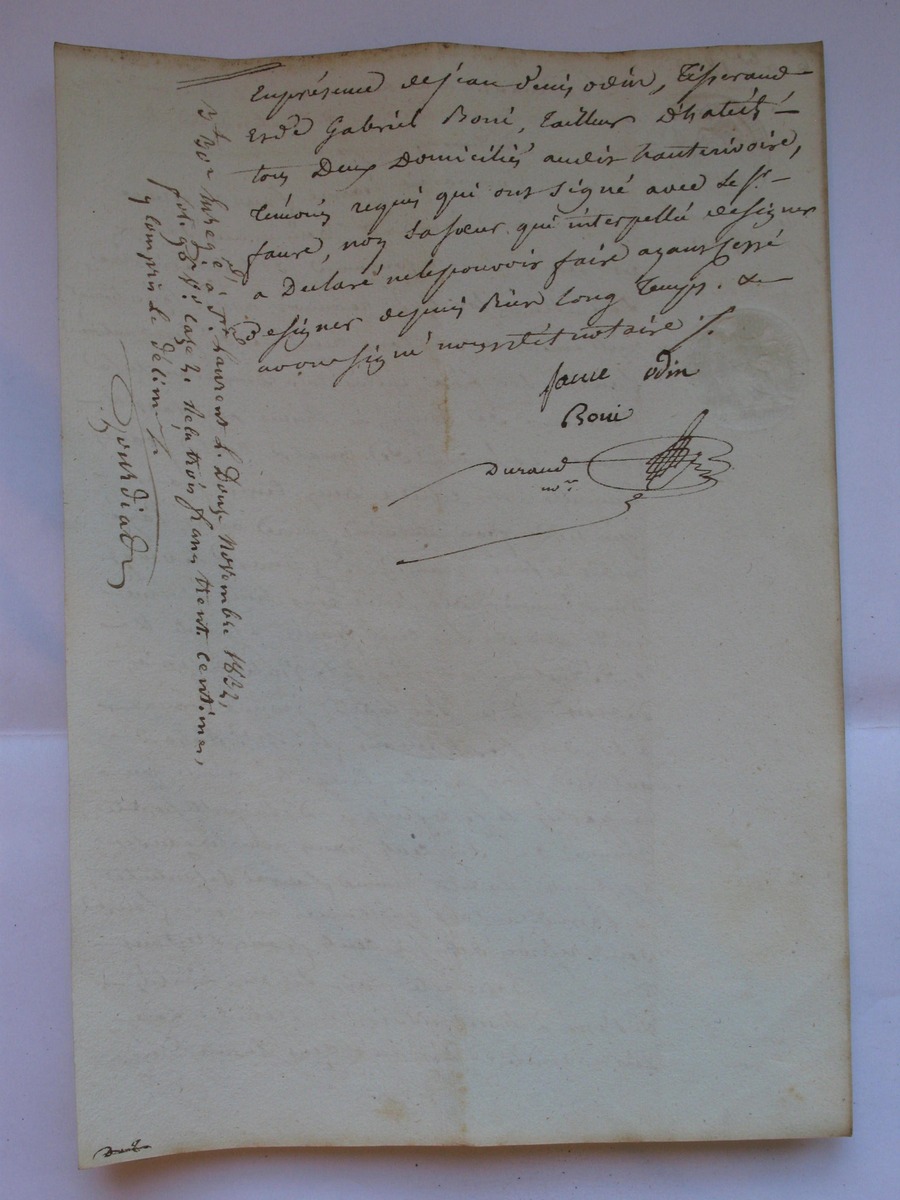 En présence de Jean Denis odin, Tisserand
Et de Gabriel Boni, Tailleur D'habits
tous Deux Domiciliés audit hauterivoire,
Témoins requis qui ont signé avec le Sr.
faure, non Sa Sœur qui interpellée de signer
a Declaré ne le pouvoir faire ayant cessé
de signer depuis bien long Temps. &
avons signé nous dit notaire
faure odin
Boni
Durand
nore
Enregé. à St. Laurent le Douze Novembre 1832,
fol. 98 Vo. Case 2. Reçu trois francs trente centimes,
y compris le décime
Gourdiat